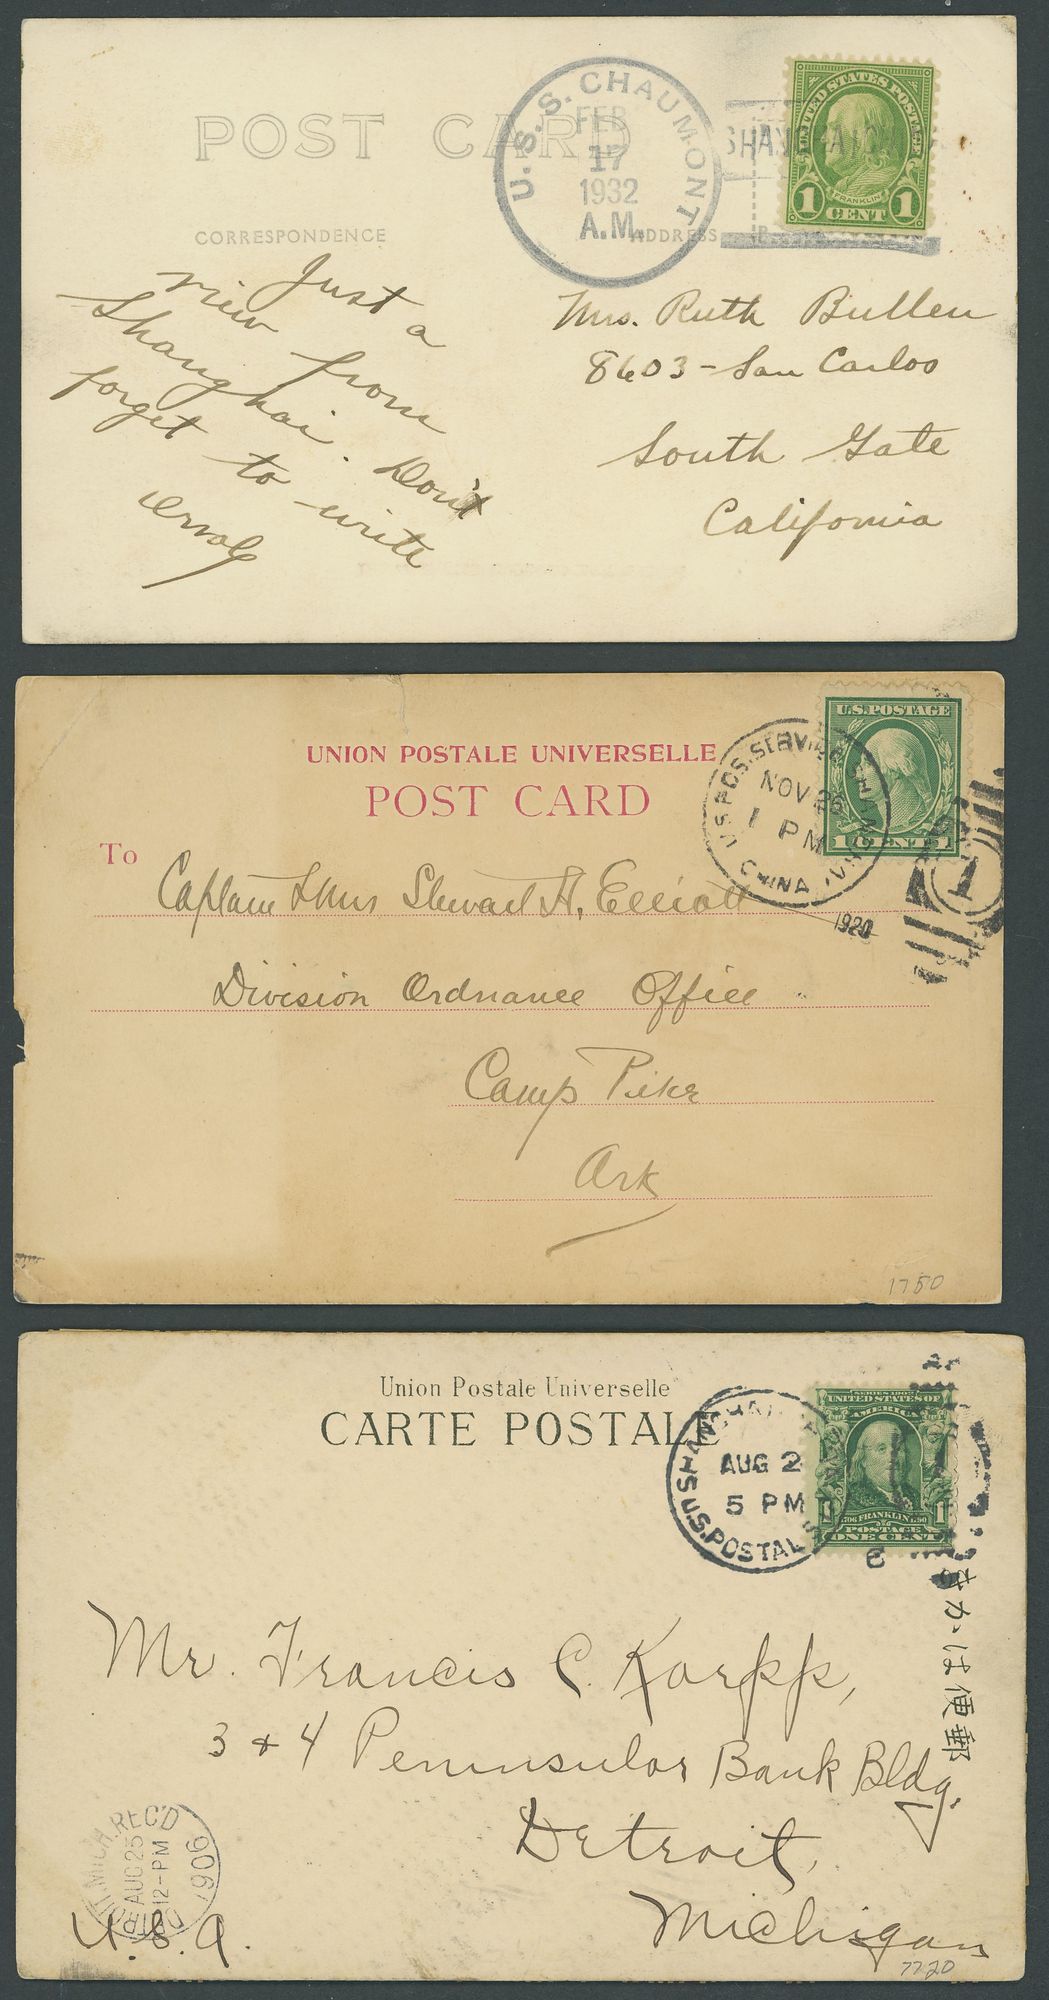 POST CARD
U.S.S. CHAUMONT
FEB
17
1932
A.M.
SHANGHAI CHINA
UNITED STATES POSTAGE
FRANKLIN
1 CENT 1
CORRESPONDENCE
ADDRESS
Just a
view from
Shanghai. Don't
forget to write
Mrs. Ruth Bullen
8603 - San Carlos
South Gate
California
UNION POSTALE UNIVERSELLE
POST CARD
U.S. POS. SERVICE SHANGHAI
NOV 26
1 PM
CHINA
1920
U.S. POSTAGE
1 CENT 1
1
To
Captain & Mrs Stewart A. Elliott
Division Ordnance Office
Camp Pike
Ark
1750
Union Postale Universelle
CARTE POSTALE
SHANGHAI
AUG 2
5 PM
U.S. POSTAL
6
SERIES 1902
UNITED STATES OF
AMERICA
1 1
1706 FRANKLIN 1790
POSTAGE
ONE CENT
きかは便郵
Mr. Francis C. Karpp,
3 & 4 Peninsular Bank Bldg.
Detroit,
Michigan
U.S.A.
DETROIT, MICH. REC'D
AUG 25
12-PM
1906
7720